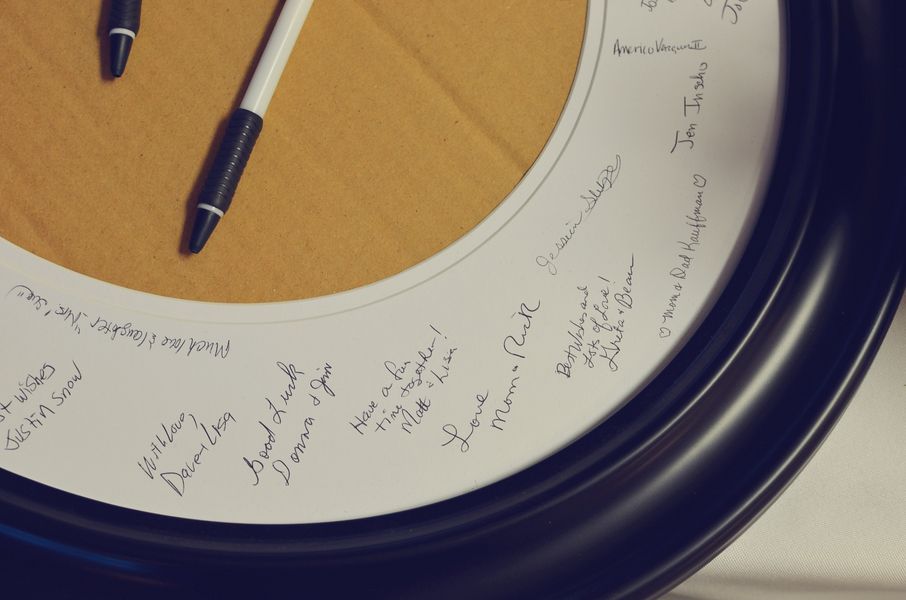 Americo Vazquez II
Jen Inscho
♡ Mom & Dad Kauffman ♡
Jessica
Best Wishes and
Lots of Love!
Greta & Beau
Love
Mom & Rick
Have a fun
time together!
Matt & Lisa
Good Luck
Donna & Jim
With Love,
Dave & Lisa
Much love & laughter "Mrs. Sue"
wishes
Justin Snow